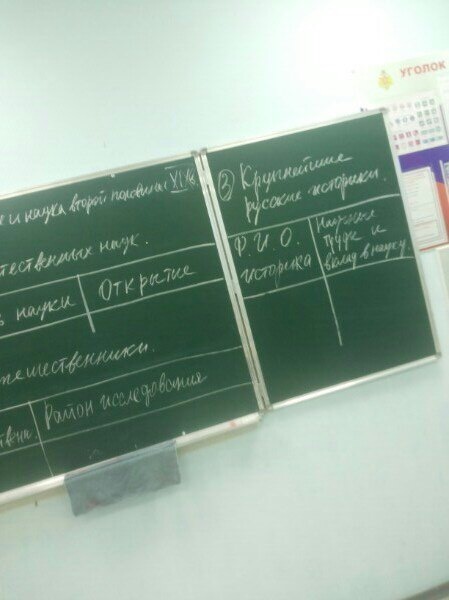 и наука второй половины XIX в.
тественных наук.
науки | Открытие
тешественники.
Район исследования
③ Крупнейшие
русские историки.
Ф. И. О.
историка
Научные
труды и
вклад в науку.
УГОЛОК